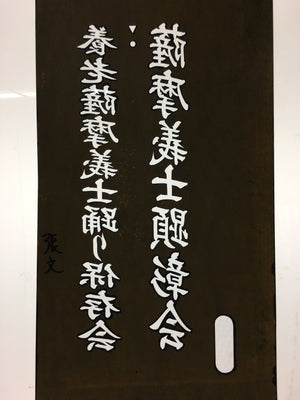 薩摩義士顕彰会
養老薩摩義士踊り保存会
張文